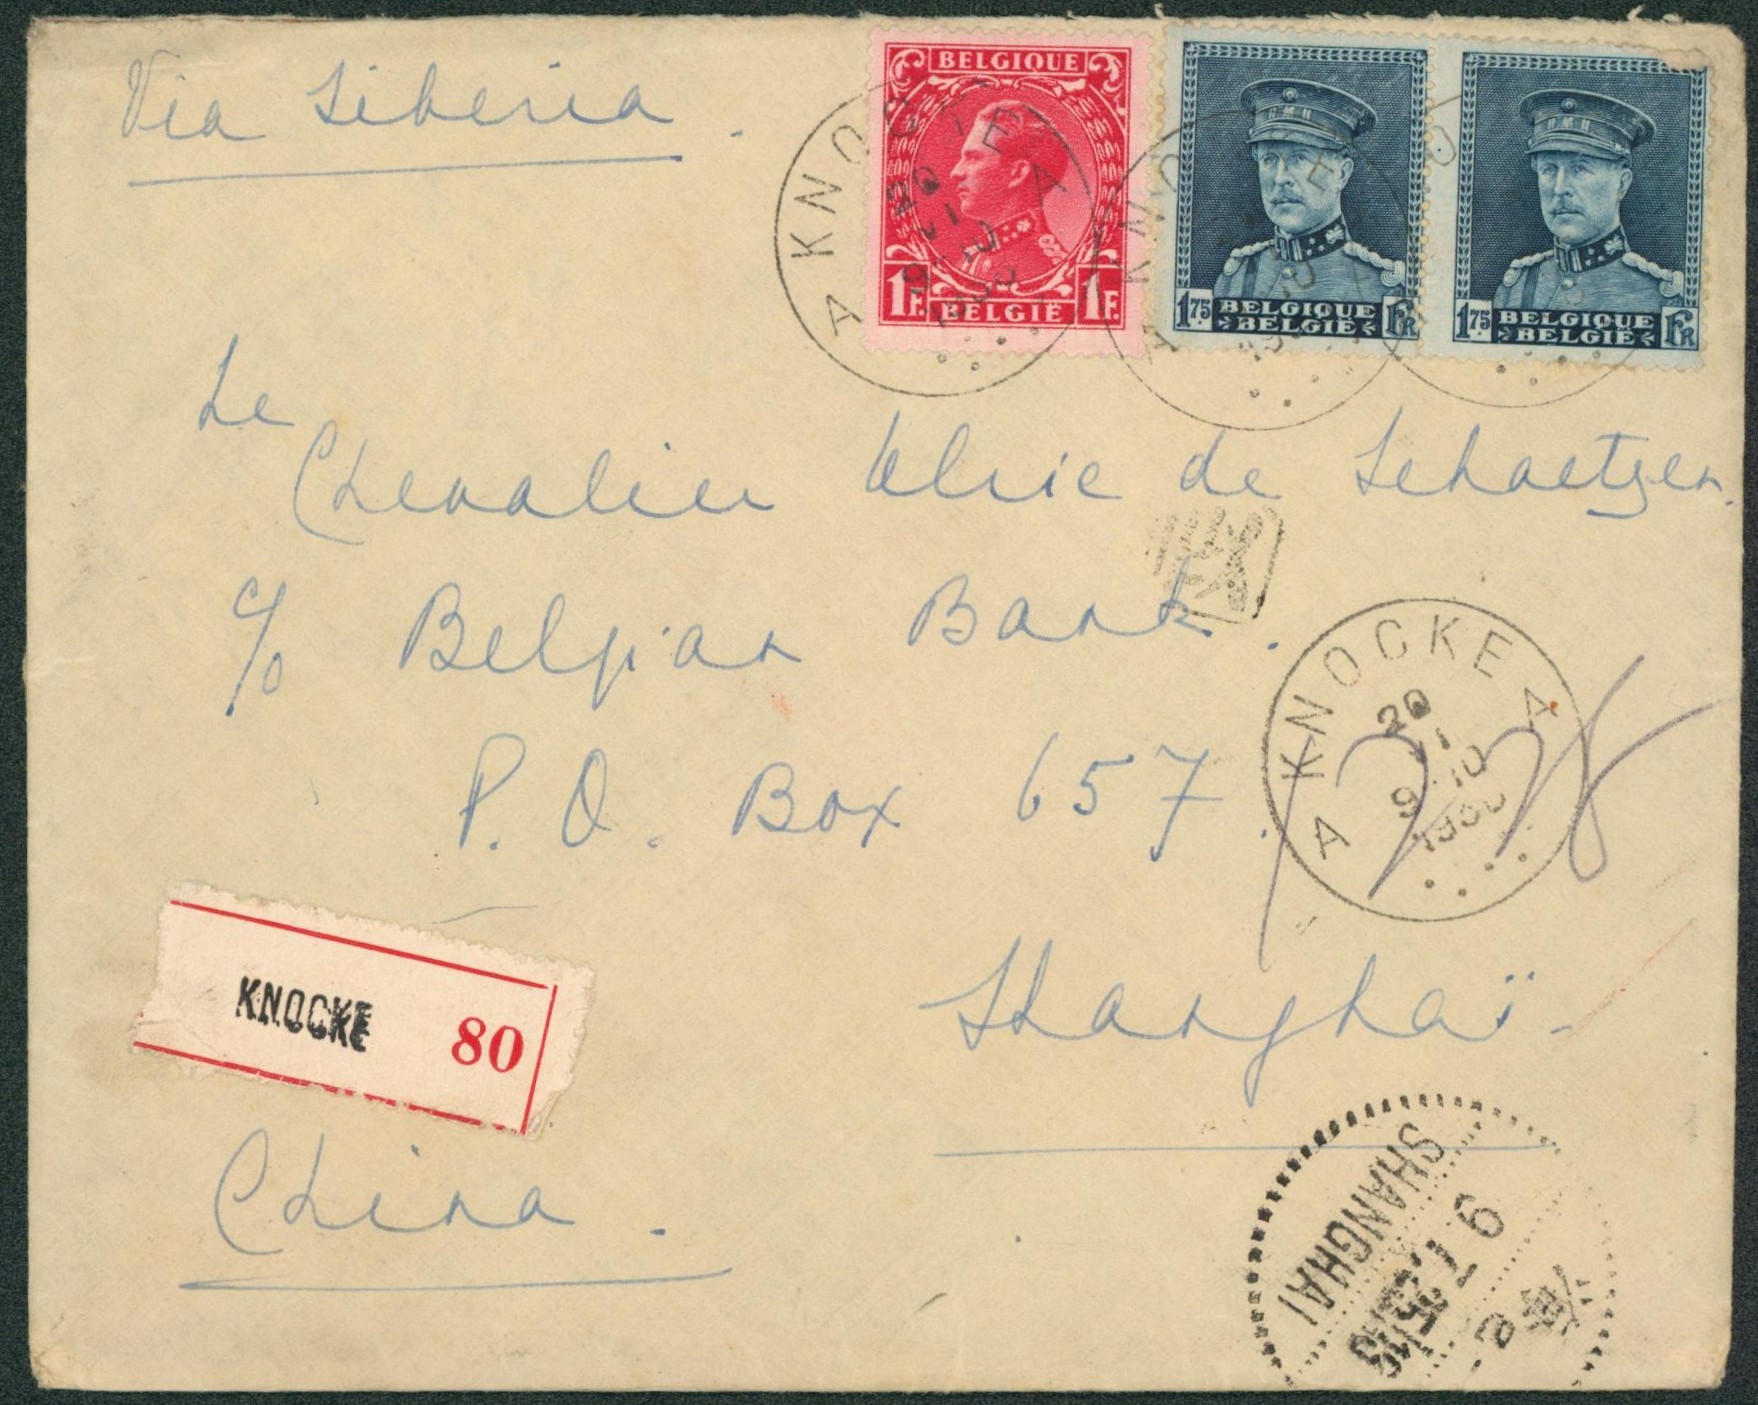 Via Siberia.
BELGIQUE
1F. BELGIË 1F.
1.75 BELGIQUE BELGIË FR
1.75 BELGIQUE BELGIË FR
A KNOCKE A
20
9-10
Le
Chevalier Ulric de Schaetzen.
c/o Belgian Bank.
P.O. Box 657.
A KNOCKE A
20
9 10
Shanghaï -
KNOCKE 80
China.
SHANGHAI